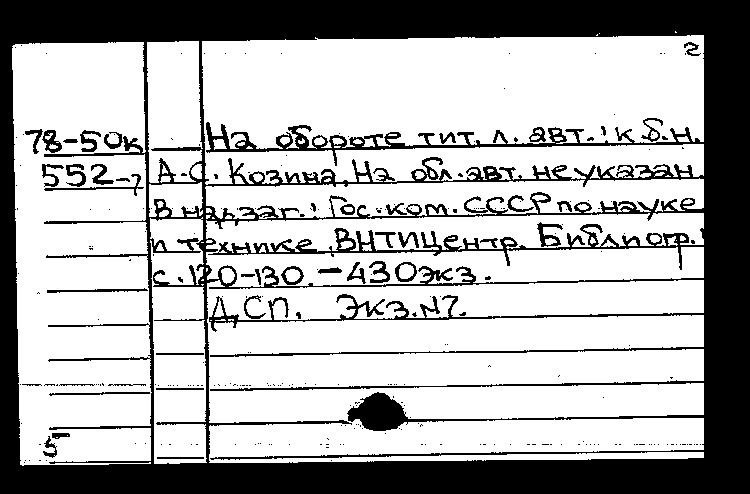 2
78-50к На обороте тит. л. авт.: к.б.н.
552-7 А.С. Козина. На обл. авт. не указан.
В надзаг.: Гос. ком. СССР по науке
и технике, ВНТИЦентр. Библиогр.:
с. 120-130. - 430 экз.
ДСП. Экз. №7.
5